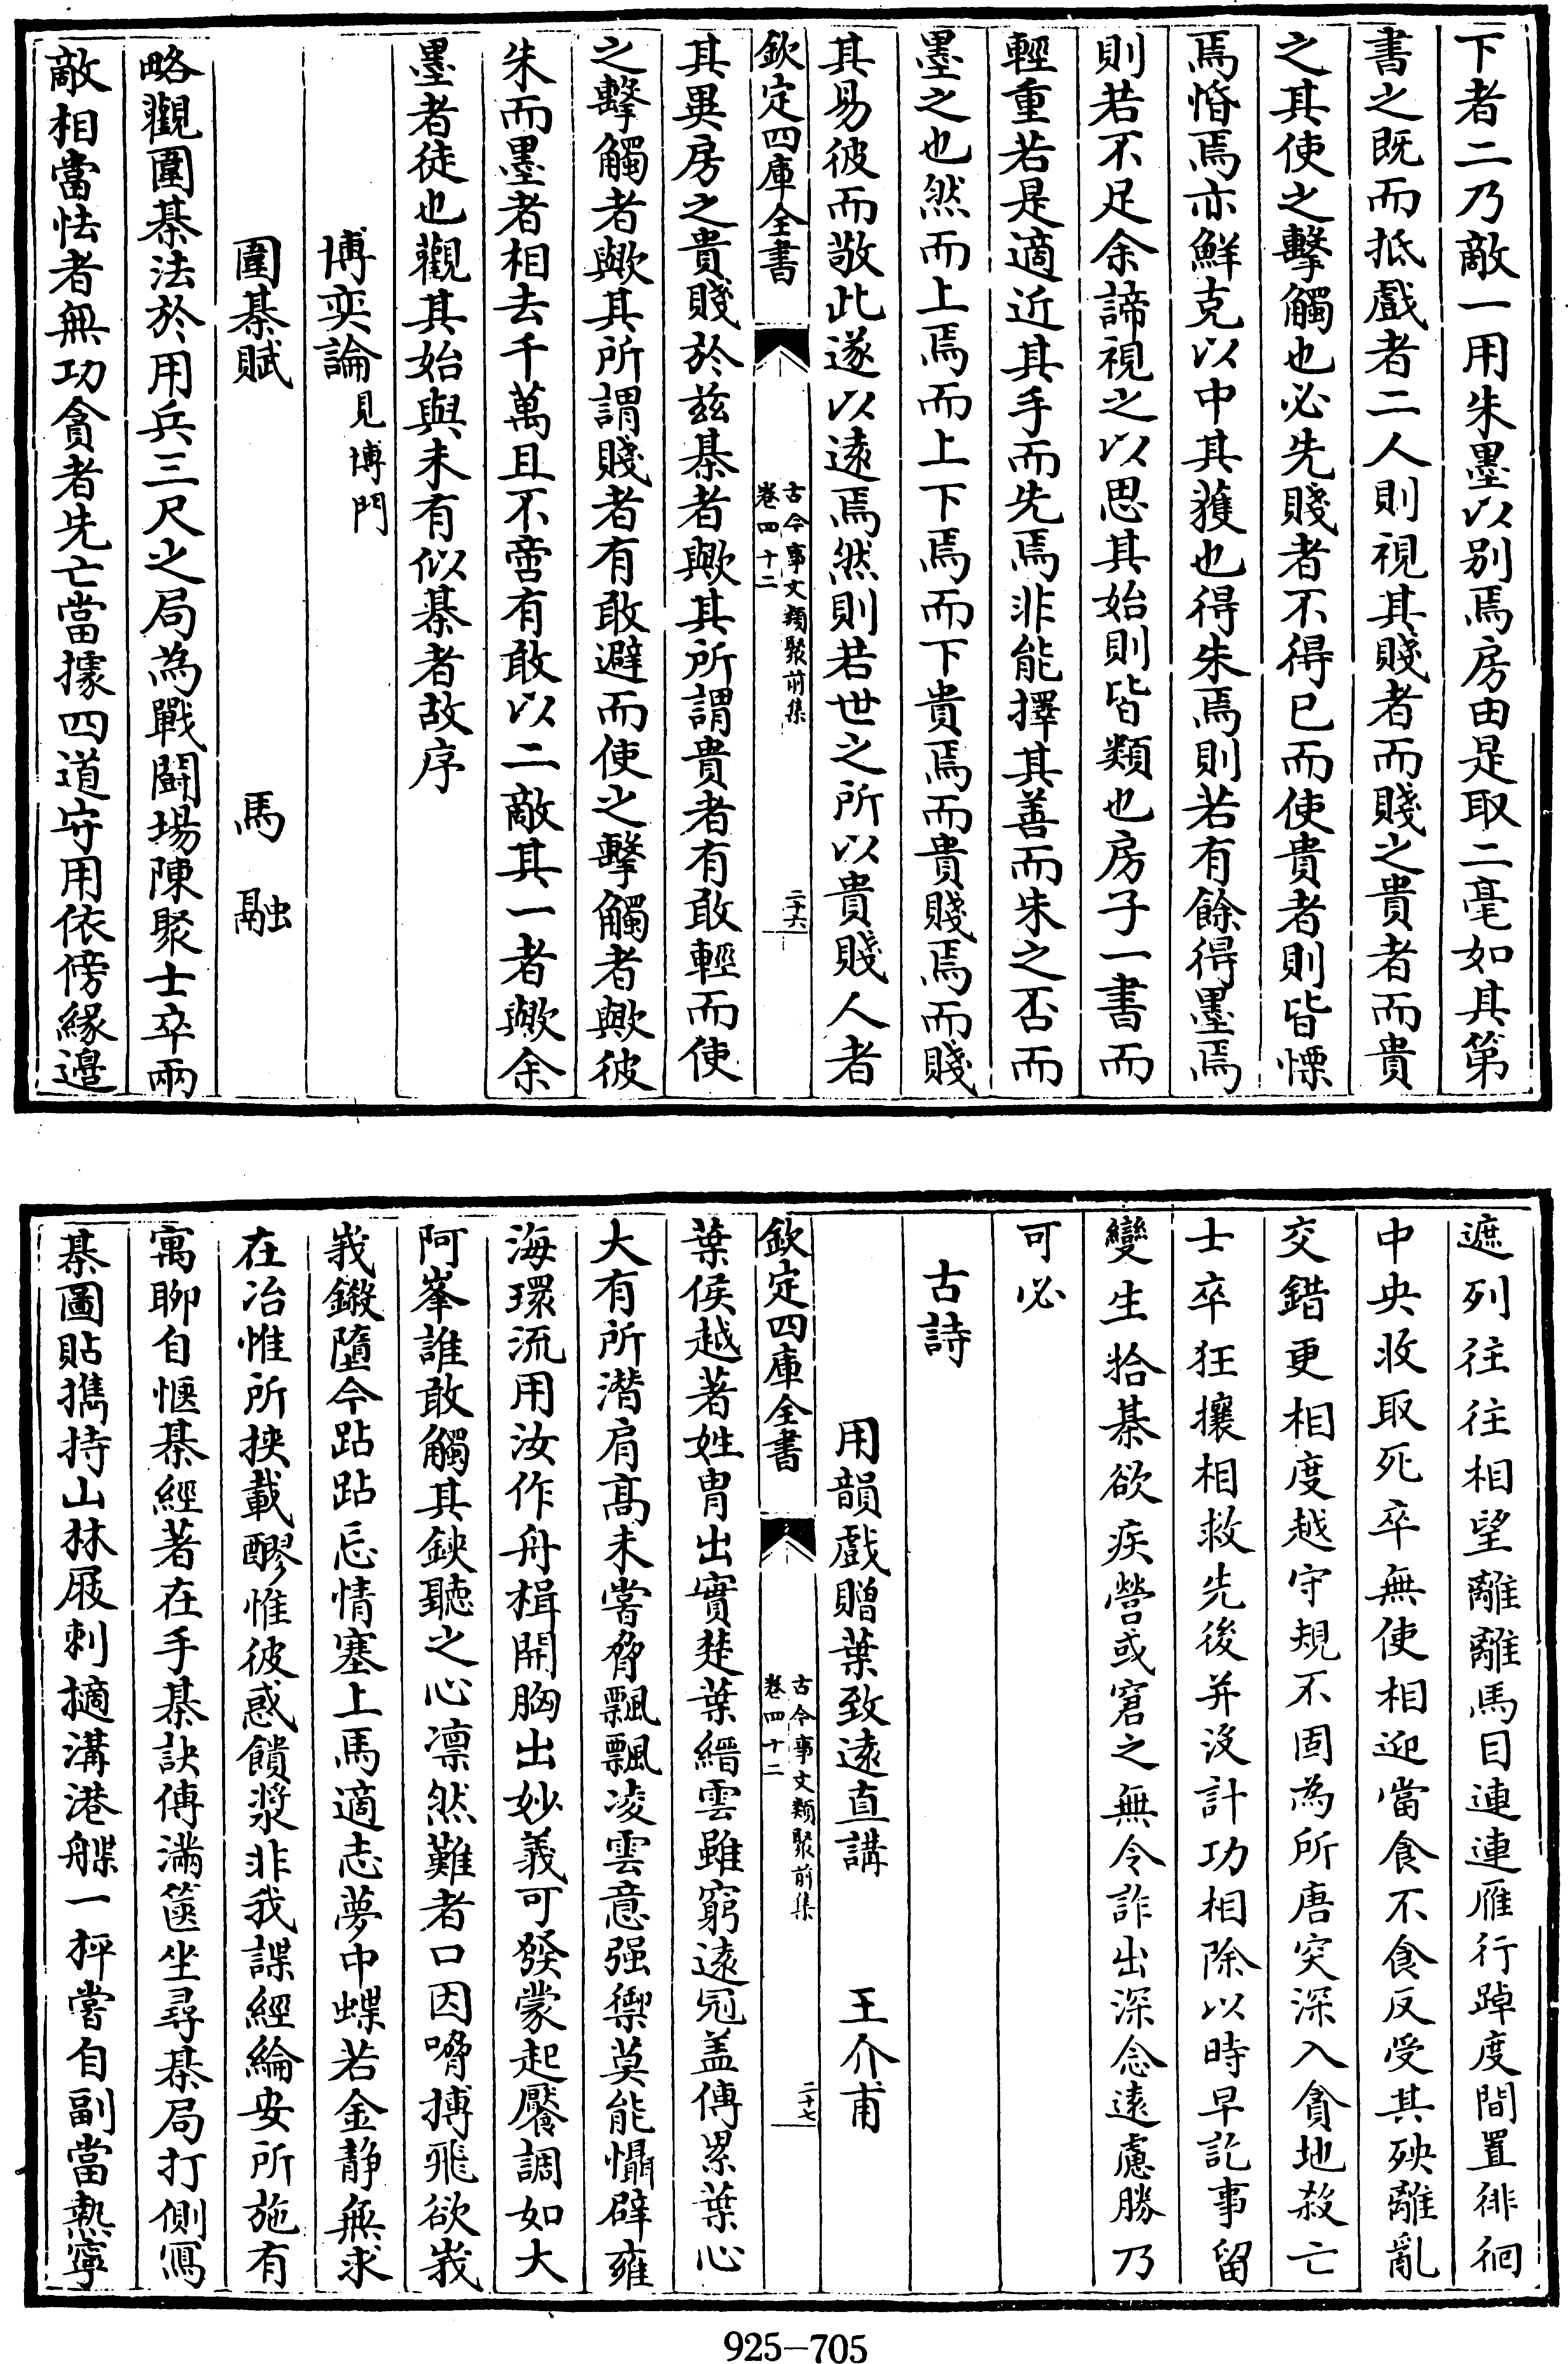 下者二乃敵一用朱墨以别焉房由是取二毫如其第
書之既而抵戲者二人則視其賤者而賤之貴者而貴
之其使之擊觸也必先賤者不得已而使貴者則皆慄
焉惛焉亦鮮克以中其獲也得朱焉則若有餘得墨焉
則若不足余諦視之以思其始則皆類也房子一書而
輕重若是適近其手而先焉非能擇其善而朱之否而
墨之也然而上焉而上下焉而下貴焉而貴賤焉而賤
其易彼而敬此遂以遠焉然則若世之所以貴賤人者
欽定四庫全書 古今事文類聚前集 卷四十二 二十六
其異房之貴賤於兹棊者歟其所謂貴者有敢輕而使
之擊觸者歟其所謂賤者有敢避而使之擊觸者歟彼
朱而墨者相去千萬且不啻有敢以二敵其一者歟余
墨者徒也觀其始與末有似棊者故序
博奕論見博門
圍棊賦 馬融
略觀圍棊法於用兵三尺之局為戰鬬場陳聚士卒兩
敵相當怯者無功貪者先亡當據四道守用依傍緣邉
遮列往往相望離離馬目連連雁行踔度間置徘徊
中央收取死卒無使相迎當食不食反受其殃離亂
交錯更相度越守規不固為所唐突深入貪地殺亡
士卒狂攘相救先後并沒計功相除以時早訖事留
變生拾棊欲疾營或窘之無令詐出深念遠慮勝乃
可必
古詩
用韻戲贈葉致遠直講 王介甫
欽定四庫全書 古今事文類聚前集 卷四十二 二十七
葉侯越著姓胄出實楚葉縉雲雖窮遠冠盖傳累葉心
大有所潛肩髙未嘗脅飄飄凌雲意强禦莫能懾辟雍
海環流用汝作舟楫開胸出妙義可發蒙起魘詞如大
阿峯誰敢觸其鋏聽之心凛然難者口因嗋摶飛欲峩
峩鎩墮今跕跕忘情塞上馬適志夢中蝶若金静無求
在冶惟所挾載醪惟彼惑饋漿非我諜經綸安所施有
寓聊自愜棊經著在手棊訣傳滿箧坐尋棊局打側寫
棊圖貼擕持山林屐刺擿溝港艓一枰嘗自副當熱寧
925-705